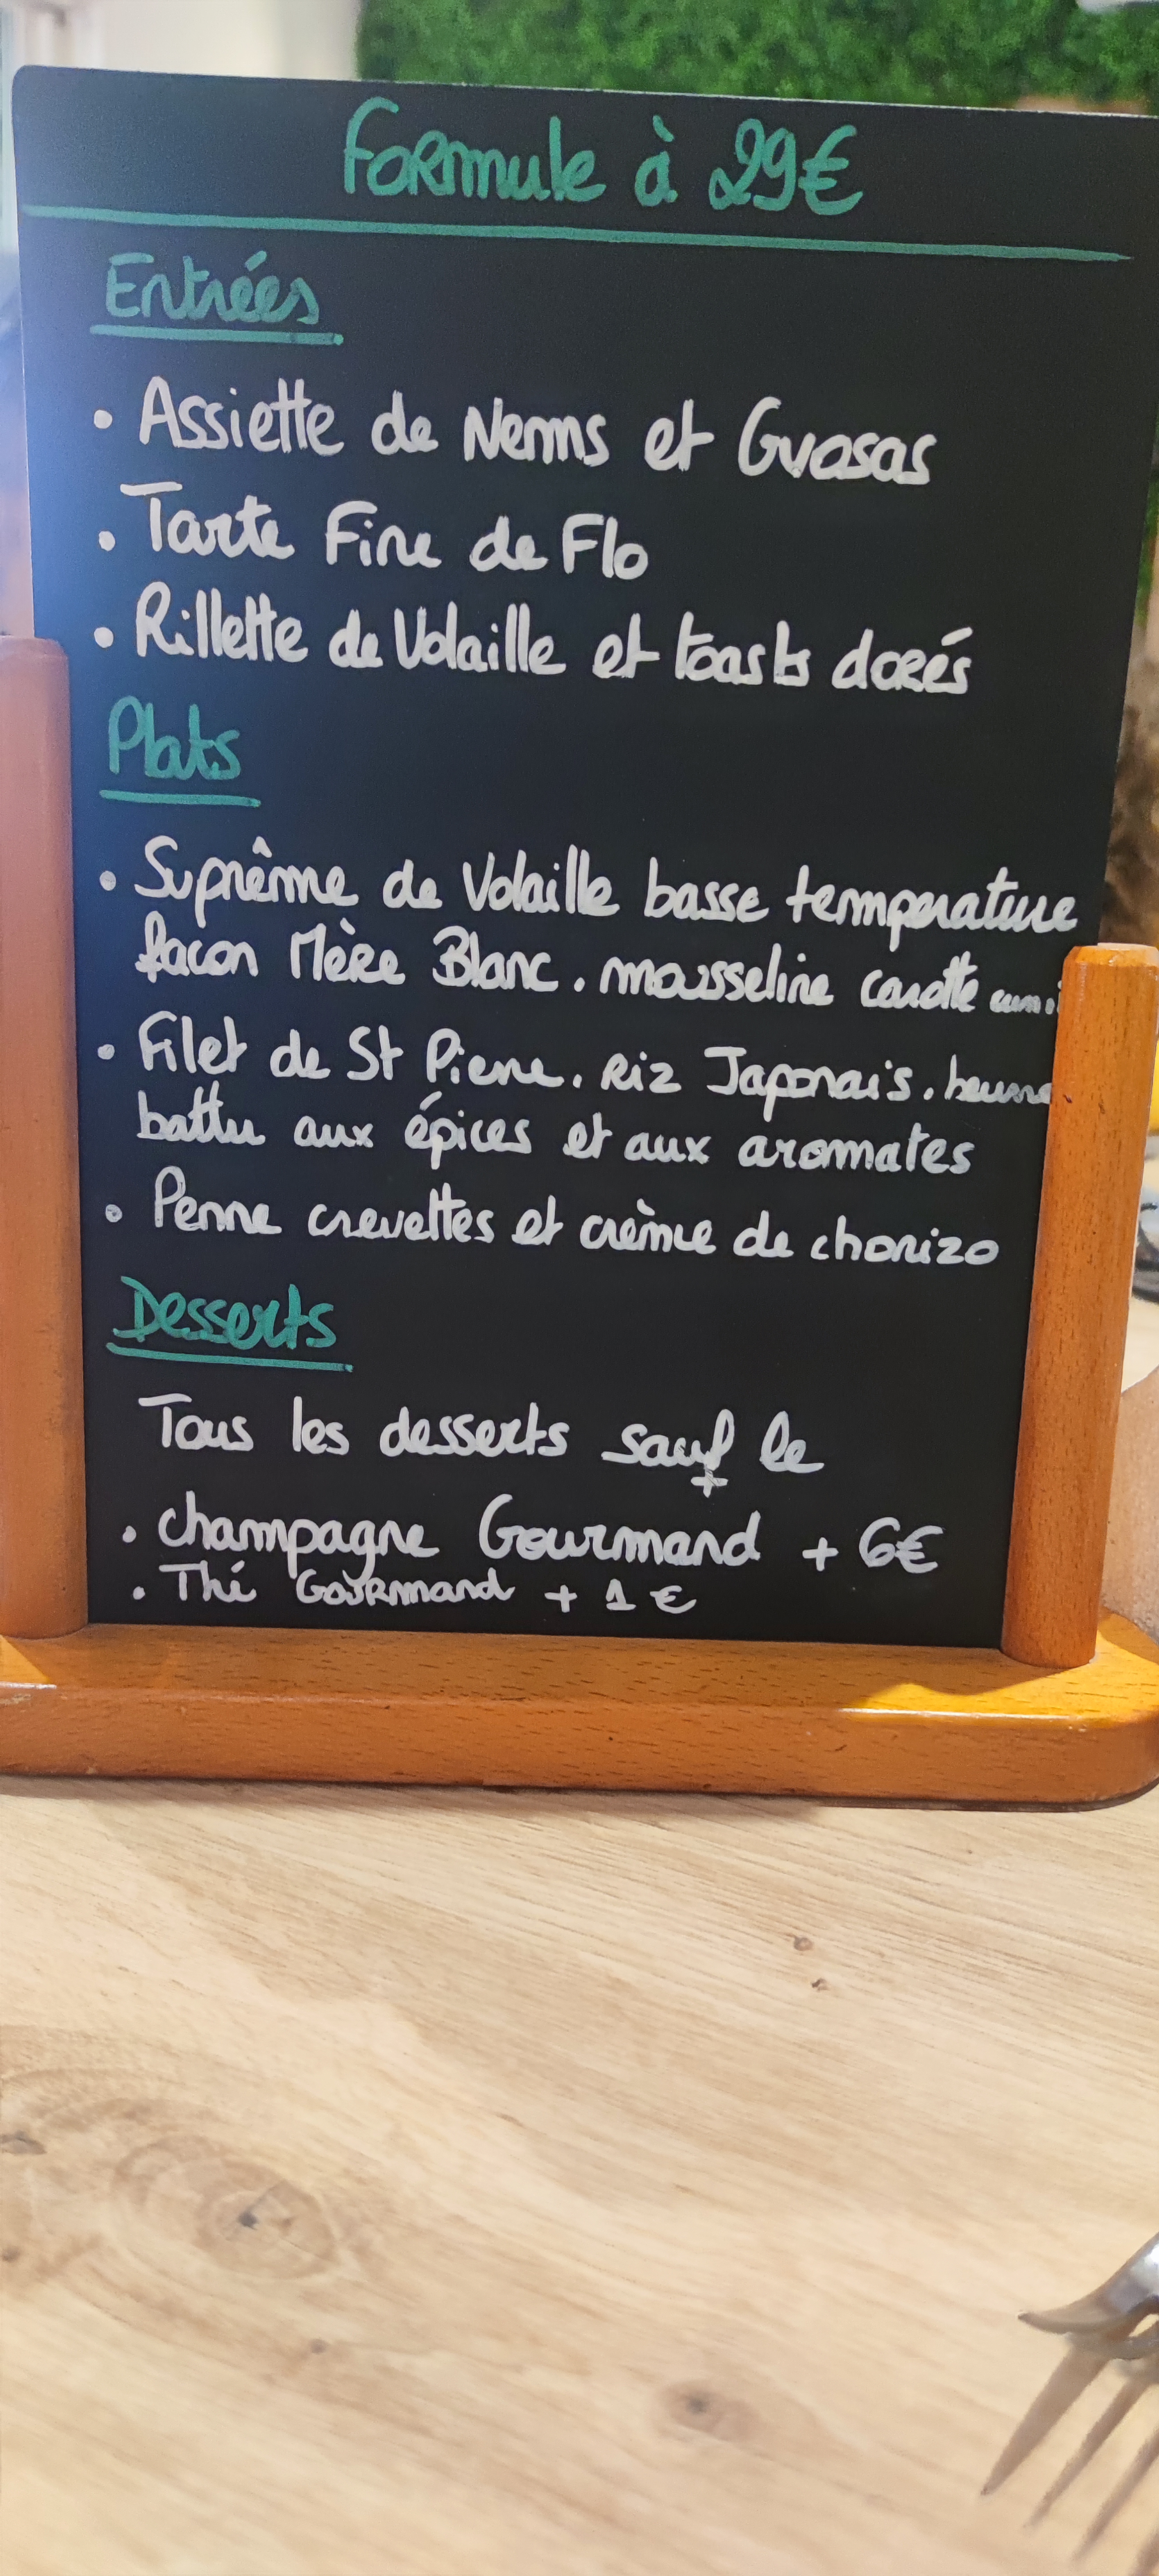 Formule à 29€
Entrées
• Assiette de Nems et Gyosas
• Tarte Fine de Flo
• Rillette de Volaille et toasts dorés
Plats
• Suprême de Volaille basse temperature
facon Mère Blanc. mousseline carotte
• Filet de St Pierre. Riz Japonais. beurre
battu aux épices et aux aromates
• Penne crevettes et crème de chorizo
Desserts
Tous les desserts sauf le
+
• champagne Gourmand + 6€
• Thé Gourmand + 1 €